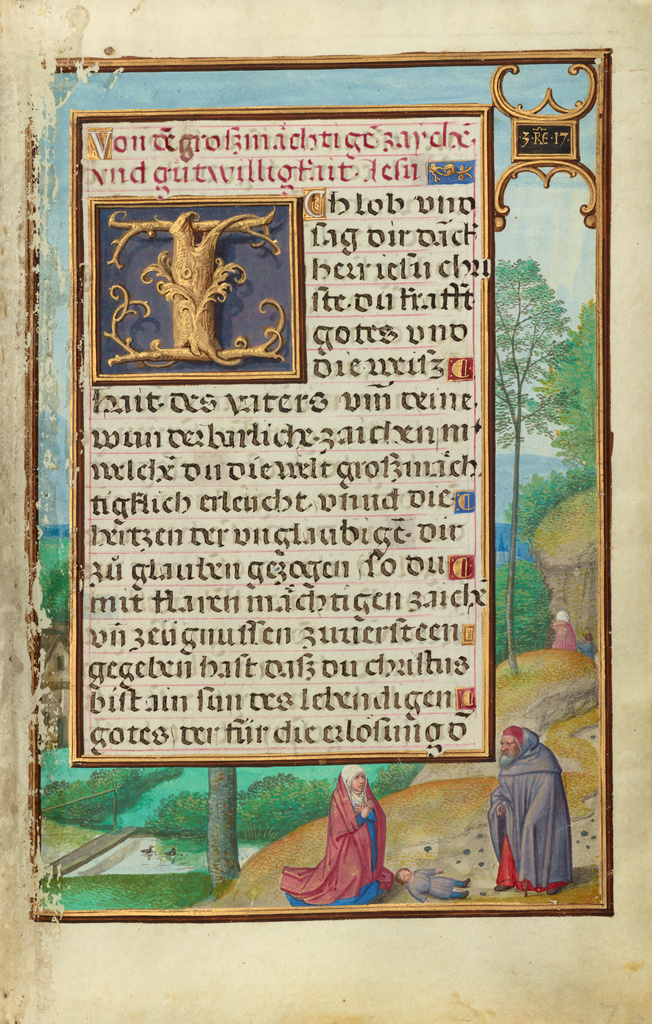 3·RE·17
Von dē großmächtigē zaychē
vnd gůtwilligkait Jesu
Ich lob vnd
sag dir dāck
herr iesu chri
ste· du krafft
gotes vnd
die weiſz
hait· des vaters vm̄ deine
wunderbarliche· zaichen m̄
welchē du die welt großmäch
tigklich erleucht· vnnd die
hertzen der vnglaubigē· dir
zů glauben gezogen so du
mit klaren mächtigen zaichē
vn̄ zeügnussen zuuersteen
gegeben hast daſz du christus
bist ain sun des lebendigen
gotes, der für die erlösung d̄